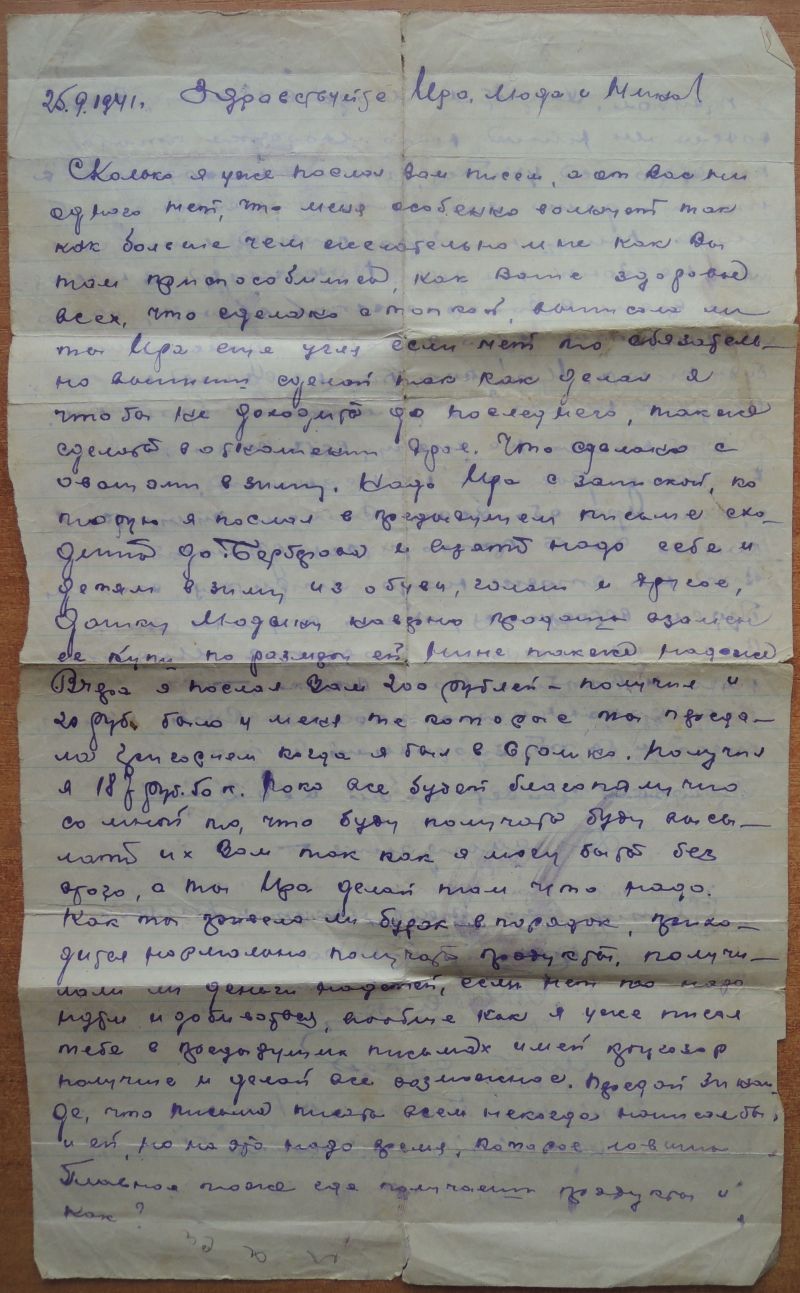 25.9.1941. Здравствуйте Ира, Люда и Нина
Сколько я уже послал вам писем, а от вас ни
одного нет, что меня особенно волнует так
как больше чем желательно мне как вы
там приспособились, как ваше здоровье
всех, что сделано с топкой, выписала ли
ты Ира еще угля если нет то обязатель-
но выпиши сделай так как делал я
чтобы не доходить до последнего, также
сделать в отношении дров. Что сделано с
овощами в зиму. Надо Ира с запиской, ко
торую я послал в предыдущем письме схо-
дить до и взять надо себе и
детям в зиму из обуви, галош и другое,
Людыну наверно продать взамен
ее купи по размеру ей, Нине также надо
Вчера я послал Вам 200 рублей - получил и
20 руб. было у меня те которые ты преда-
ла когда я был в Получил
я 18 руб. Пока все будет благополучно
со мной то, что буду получать буду высы-
лать их Вам так как я могу быть без
этого, а ты Ира делай там что надо.
Как ты привела ли в порядок, прихо-
дится нормально получать продукты, получи-
лали ли деньги на детей, если нет то надо
идти и добиваться, вообще как я уже писал
тебе в предыдущих письмах имей кругозор
получше и делай все возможное. Предай Зинаи-
де, что письма писать всем некогда написал бы
и ей, но на это надо время, которое
Главное тоже где получаеш продукты и
как?